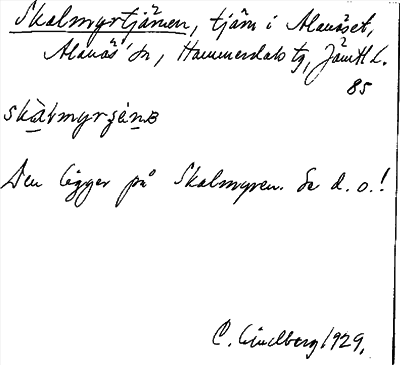 Skalmyrtjärnen, tjärn i Alanäset,
Alanäs' sn, Hammerdals tg, Jämtl L.
85
skàlmyrɟänə
Den ligger på Skalmyren. Se d. o.!
C. Lindberg 1929.